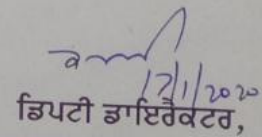 17/1/2020
ਡਿਪਟੀ ਡਾਇਰੈਕਟਰ,